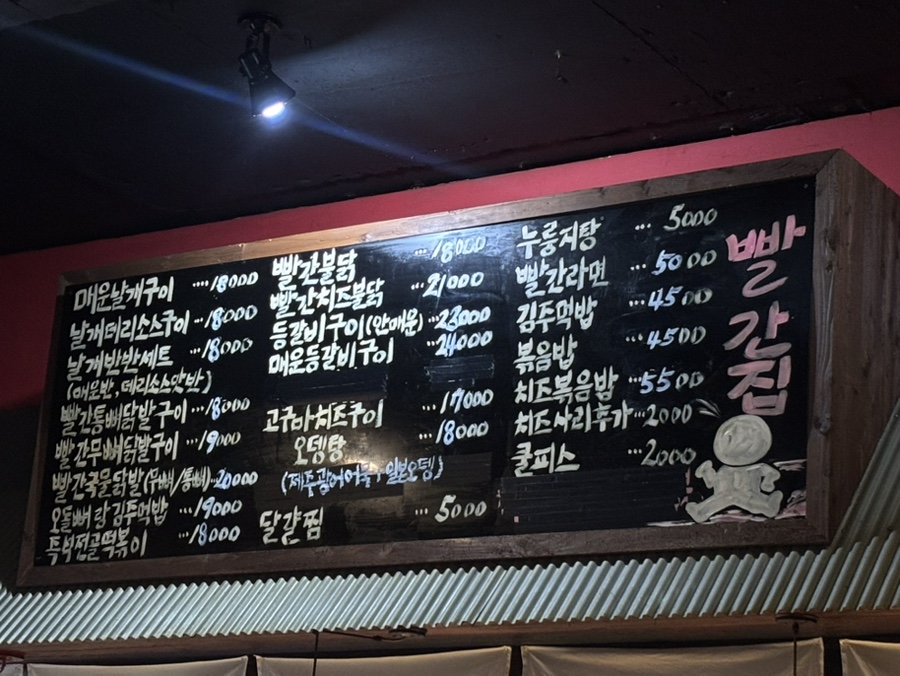 매운날개구이 ...18000
날개데리소스구이 ...18000
날개반반세트 ...18000
(매운반, 데리소스맛반)
빨간통뼈닭발구이 ...18000
빨간무뼈닭발구이 ...19000
빨간국물닭발(무뼈/통뼈)...20000
오돌뼈랑김주먹밥 ...19000
즉석전골떡볶이 ...18000
빨간불닭 ...18000
빨간치즈불닭 ...21000
등갈비구이(안매운) ...23000
매운등갈비구이 ...24000
고구마치즈구이 ...17000
오뎅탕 ...18000
(제주광어어묵+일본오뎅)
달걀찜 ...5000
누룽지탕 ...5000
빨간라면 ...5000
김주먹밥 ...4500
볶음밥 ...4500
치즈볶음밥 ...5500
치즈사리추가...2000
쿨피스 ...2000
빨간집